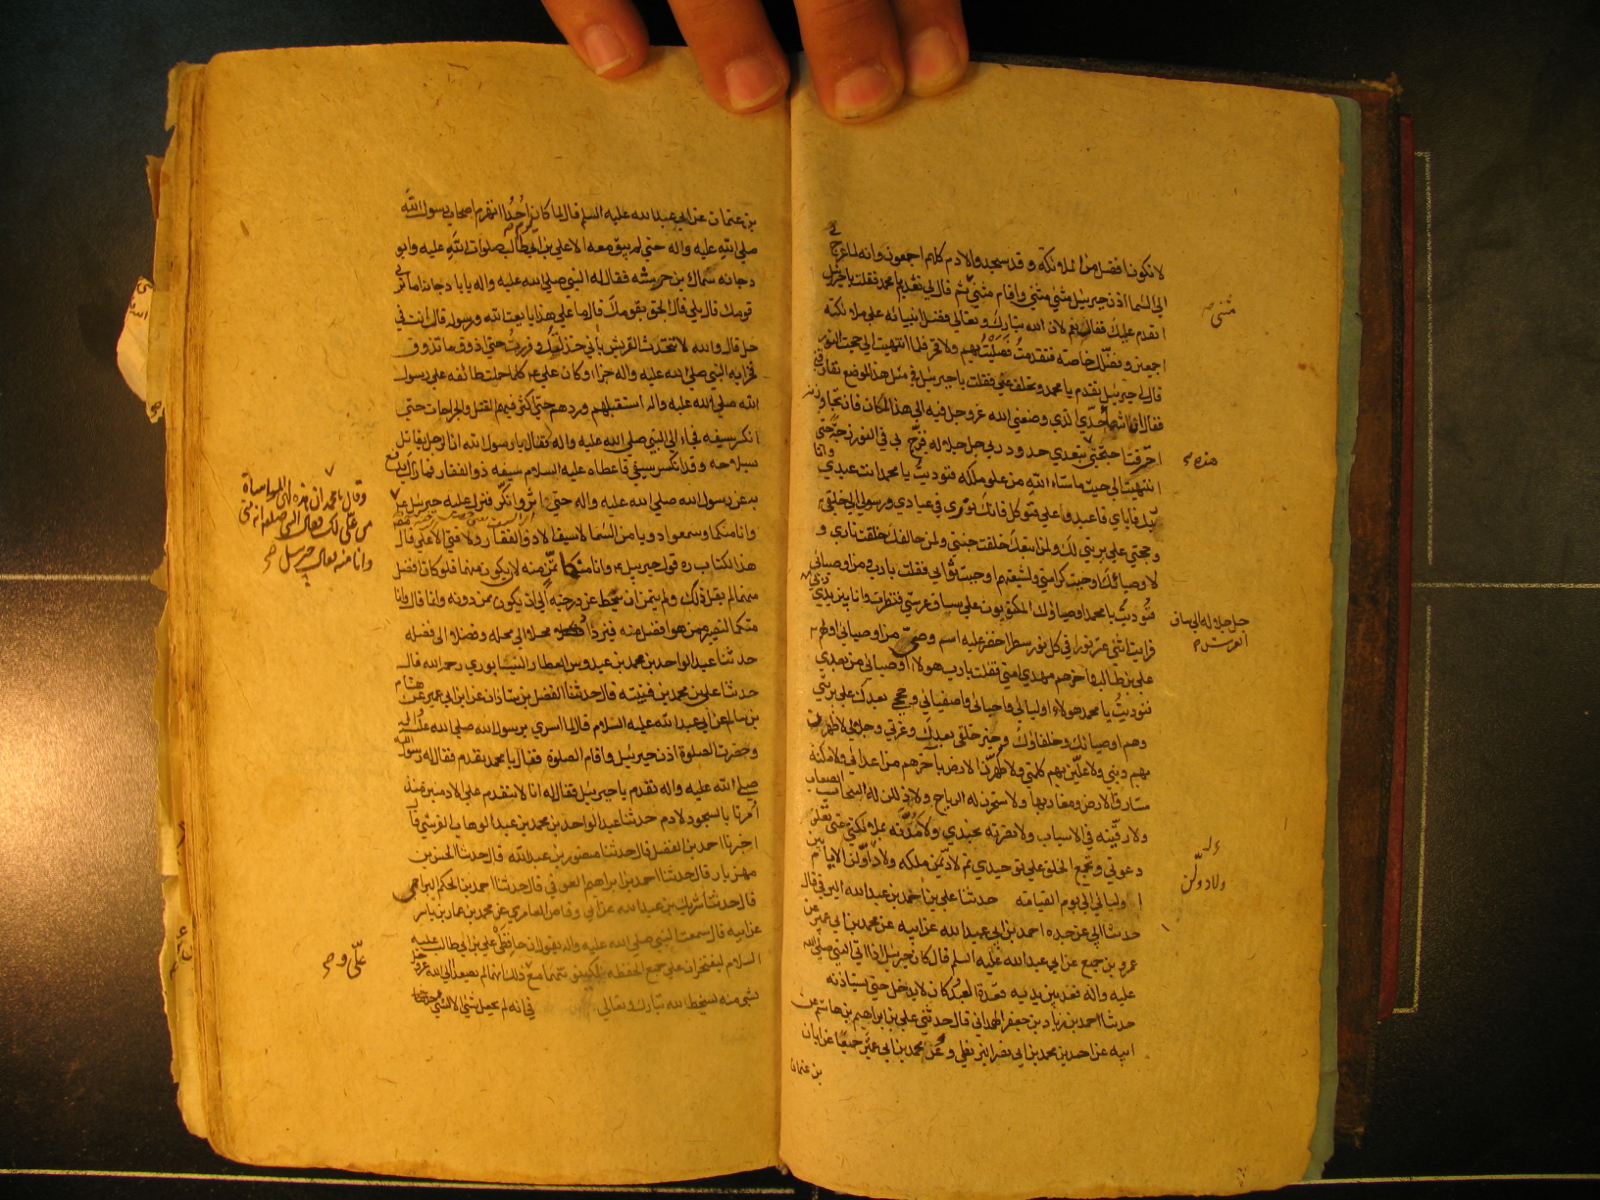 لا نكون افضل من الملائكة و قد سجدوا لادم كلهم اجمعون وانه لما عرج بي
الى السما اذن جبرئيل مثنى مثنى واقام مثنى ثم قال لي تقدم يا محمد فقلت يا جبرئيل
اتقدم عليك فقال نعم لان الله تبارك وتعالى فضل انبيائه على ملائكته
اجمعين وفضلك خاصه فتقدمت فصليت بهم ولا فخر فلما انتهيت الى حجب النور
قال لي جبرئيل تقدم يا محمد وتخلف عني فقلت يا جبرئيل في مثل هذا الموضع تفارقني
فقال ان انتهاء حدي الذي وضعني الله عز وجل فيه الى هذا المكان فان تجاوزته
احترقت اجنحتي بتعدي حدود ربي جل جلاله فزج بي في النور زجة حتى
انتهيت الى حيث ما شاء الله من علو ملكه فنوديت يا محمد انت عبدي وانا
ربك فاياي فاعبد وعلي فتوكل فانك نوري في عبادي ورسولي الى خلقي
وحجتي على بريتي لك ولمن اتبعك خلقت جنتي ولمن خالفك خلقت ناري و
لاوصيائك اوجبت كرامتي ولشيعتهم اوجبت ثوابي فقلت يا رب ومن اوصيائي
فنوديت يا محمد اوصياؤك المكتوبون على ساق عرشي فنظرت وانا بين يدي ربي
فرايت اثنى عشر نورا في كل نور سطر اخضر عليه اسم وصي من اوصيائي اولهم
علي بن طالب واخرهم مهدي امتي فقلت يا رب هولاء اوصيائي من بعدي
فنوديت يا محمد هولاء اوليائي واحبائي واصفيائي وحججي بعدك على بريتي
وهم اوصيائك وخلفاؤك وخير خلقي بعدك وعزتي وجلالي لاظهرن
بهم ديني ولاعلين بهم كلمتي ولاطهرن الارض باخرهم من اعدائي ولاملكنه
مشارق الارض ومغاربها ولاسخرن له الرياح ولاذللن له السحاب الصعاب
ولارقينه في الاسباب ولانصرنه بجندي ولامدنه بملائكتي حتى يعلن
دعوتي ويجمع الخلق على توحيدي ثم لاديمن ملكه ولاداولن الايام بين
اوليائي الى يوم القيامه حدثنا علي بن احمد بن عبد الله البرقي قال
حدثنا ابي عن جده احمد بن ابي عبد الله عن ابيه عن محمد بن ابي عمير عن
عمرو بن جميع عن ابي عبد الله عليه السلم قال كان جبرئيل اذا اتى النبي صلى الله
عليه واله قعد بين يديه قعدة العبد وكان لا يدخل حتى يستاذنه
حدثنا احمد بن زياد بن جعفر الهمداني قال حدثني علي بن ابراهيم بن هاشم عن
ابيه عن احمد بن محمد بن ابي نصر البزنطي وعن محمد بن ابي عمير جميعا عن ابان
بن عثمان
مثنى صح
هذه صح
جل جلاله الى ساق
العرش صح
ولاداولن
بن عثمان عن ابي عبد الله عليه السلم قال لما كان يوم احد انهزم اصحاب رسول الله
صلى الله عليه واله حتى لم يبق معه الا علي بن ابي طالب صلوات الله عليه وابو
دجانه سماك بن خرشه فقال له النبي صلى الله عليه واله يا با دجانه اما ترى
قومك قال بلى قال الحق بقومك قال ما على هذا بايعت الله ورسوله قال انت في
حل قال والله لا تتحدث القريش باني خذلتك وفررت حتى اذوق ما تذوق
فجزاه النبي صلى الله عليه واله خيرا وكان علي ع كلما حملت طائفه على رسول
الله صلى الله عليه واله استقبلهم وردهم حتى اكثر فيهم القتل والجراحات حتى
انكسر سيفه فجاء الى النبي صلى الله عليه واله فقال يا رسول الله ان الرجل يقاتل
بسلاحه وقد انكسر سيفي فاعطاه عليه السلام سيفه ذو الفقار فما زال يدفع
به عن رسول الله صلى الله عليه واله حتى اثر وانكر فنزل عليه جبرئيل
وانا منكما وسمعوا دويا من السما لا سيف الا ذو الفقار ولا فتى الا علي قال
هذا الكتاب ره قول جبرئيل ع وانا منكما
منهما لم يقل ذلك ولم يتمن ان ينحط عن درجته الى ان يكون ممن دونه وانما قال وانا
منكما ليصير ممن هو افضل منه فيزداد محلا الى محله وفضلا الى فضله
حدثنا عبد الواحد بن محمد بن عبدوس العطار النيسابوري رحمه الله قال
حدثنا علي بن محمد بن قتيبه قال حدثنا الفضل بن شاذان عن ابن ابي عمير عن هشام
بن سالم عن ابي عبد الله عليه السلام قال لما اسري برسول الله صلى الله عليه واله
وحضرت الصلوة اذن جبرئيل واقام الصلوة فقال يا محمد تقدم فقال له رسول الله
صلى الله عليه واله تقدم يا جبرئيل فقال له انا لا نتقدم على الادميين منذ
امرنا بالسجود لادم حدثنا عبد الواحد بن محمد بن عبد الوهاب القرشي قال
اخبرنا احمد بن الفضل قال حدثنا منصور بن عبد الله قال حدثنا الحسن بن
مهزيار قال حدثنا احمد بن ابراهيم العوفي قال حدثنا احمد بن الحكم البراجمي
قال حدثنا شريك بن عبد الله عن ابي وقاص العامري عن محمد بن عمار بن ياسر
عن ابيه قال سمعت النبي صلى الله عليه واله يقول ان حافظي علي بن ابي طالب عليه
السلام ليفتخران على جميع الحفظه لكينونتهما مع ذلك انهما لم يصعدا الى الله عز وجل
بشي منه يسخط الله تبارك وتعالى في انه لم يجعل شئ الا لشئ
وقال يا محمد ان هذه لهي المواساة
من علي لك فقال النبي صلعم انه مني
وانا منه فقال جبرئيل صح
علي و صح